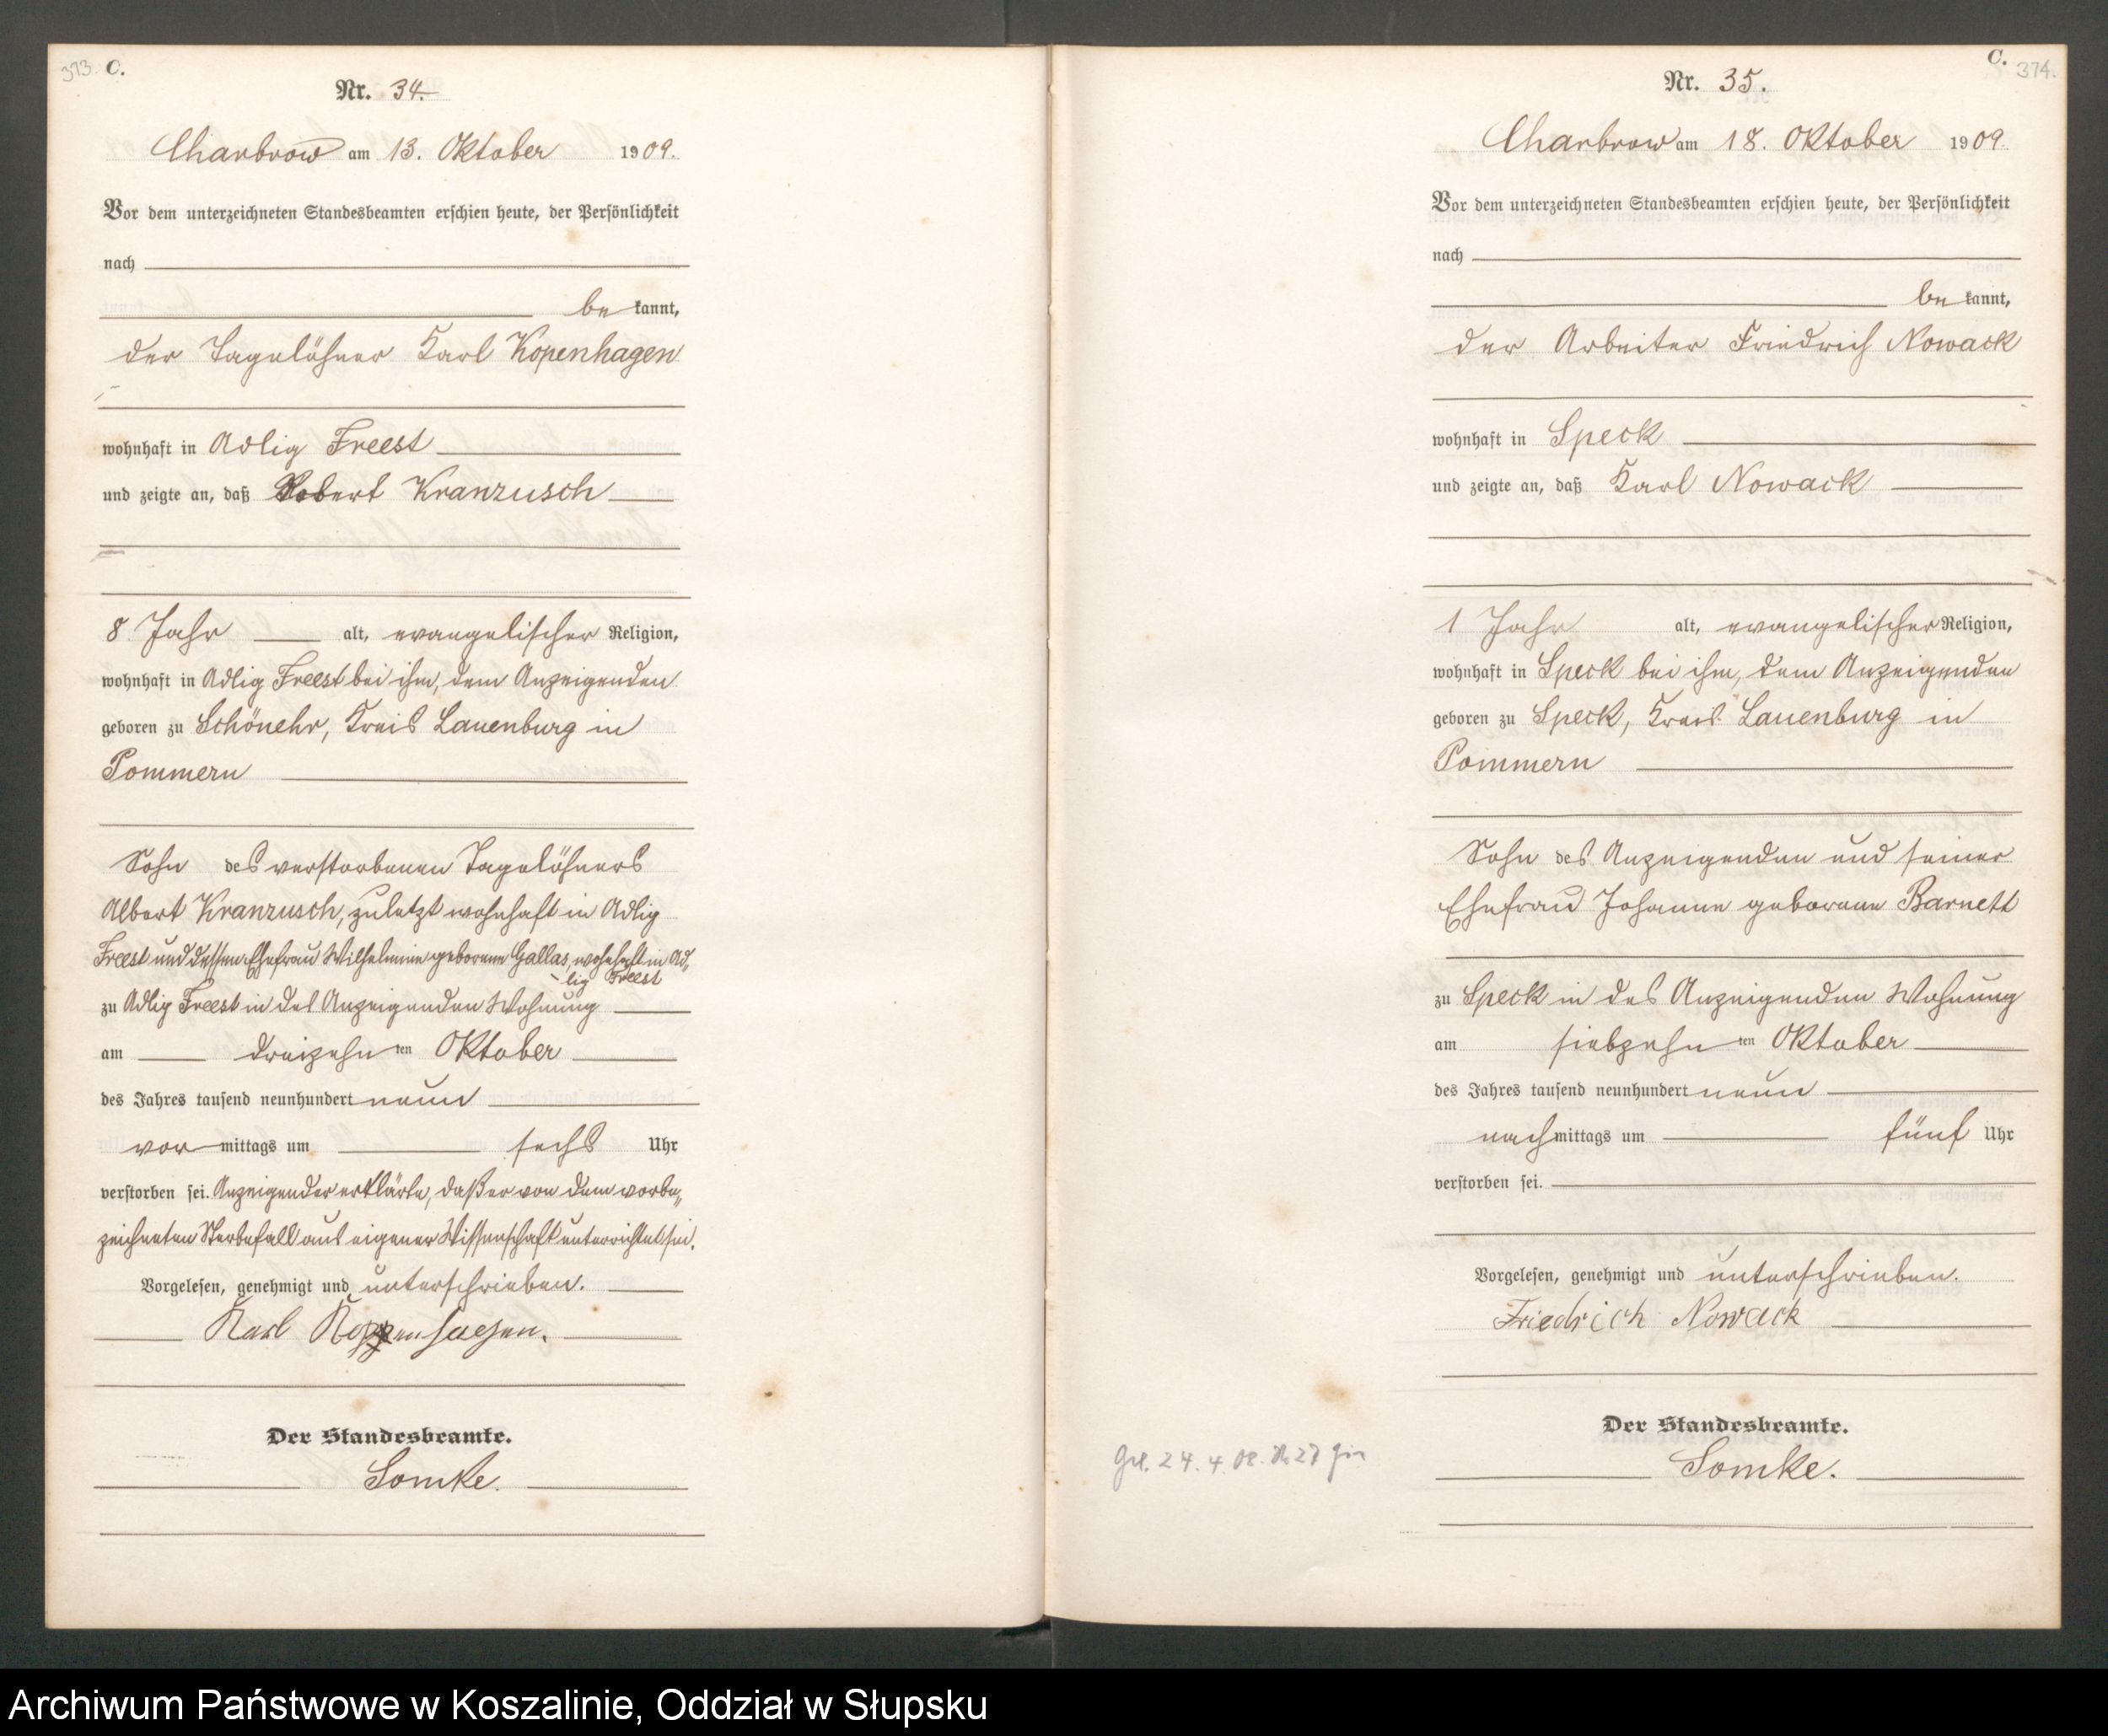 373. C.
Nr. 34.
Charbrow am 13. Oktober 1909.
Vor dem unterzeichneten Standesbeamten erschien heute, der Persönlichkeit
nach
be kannt,
der Tagelöhner Karl Kopenhagen
wohnhaft in Adlig Freest
und zeigte an, daß Robert Kranzusch
8 Jahr alt, evangelischer Religion,
wohnhaft in Adlig Freest bei ihm, dem Anzeigenden
geboren zu Schönehr, Kreis Lauenburg in
Pommern
Sohn des verstorbenen Tagelöhners
Albert Kranzusch, zuletzt wohnhaft in Adlig
Freest und dessen Ehefrau Wilhelmine geborene Gallas, wohnhaft in Ad„
lig Freest
zu Adlig Freest in des Anzeigenden Wohnung
am dreizehn ten Oktober
des Jahres tausend neunhundert neun
vor mittags um sechs Uhr
verstorben sei. Anzeigender erklärte, daß er von dem vorbe„
zeichneten Sterbefall aus eigener Wissenschaft unterrichtet sei.
Vorgelesen, genehmigt und unterschrieben.
Karl Koppenhagen.
Der Standesbeamte.
Somke.
C. 374.
Nr. 35.
Charbrow am 18. Oktober 1909.
Vor dem unterzeichneten Standesbeamten erschien heute, der Persönlichkeit
nach
be kannt,
der Arbeiter Friedrich Nowack
wohnhaft in Speck
und zeigte an, daß Karl Nowack
1 Jahr alt, evangelischer Religion,
wohnhaft in Speck bei ihm, dem Anzeigenden
geboren zu Speck, Kreis Lauenburg in
Pommern
Sohn des Anzeigenden und seiner
Ehefrau Johanne geborene Barnett
zu Speck in des Anzeigenden Wohnung
am siebzehn ten Oktober
des Jahres tausend neunhundert neun
nach mittags um fünf Uhr
verstorben sei.
Vorgelesen, genehmigt und unterschrieben.
Friedrich Nowack
Der Standesbeamte.
Somke.
24. 4. 08. 27
Archiwum Państwowe w Koszalinie, Oddział w Słupsku